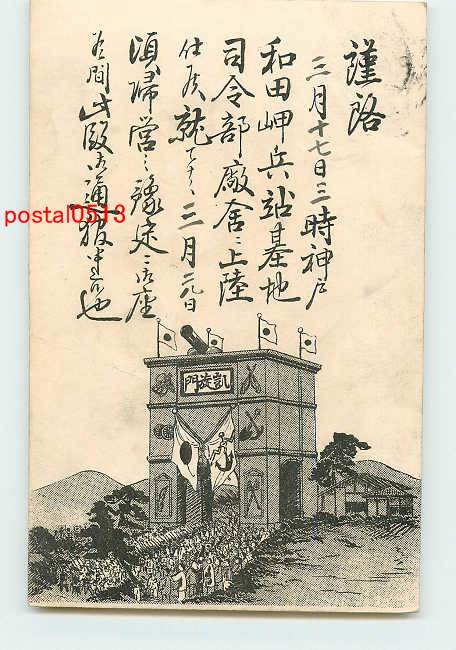 謹啓
三月十七日三時神戸
和田岬兵站基地
司令部廠舎ニ上陸
仕候就テハ三月二八日
頃帰営之豫定ニ御座
候間此段御通報申上候也
凱旋門
postal0513